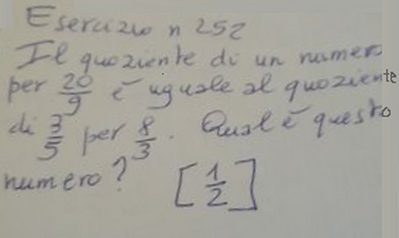 Esercizio n 252
Il quoziente di un numero
per 20/9 è uguale al quoziente
di 3/5 per 8/3. Qual è questo
numero? [1/2]